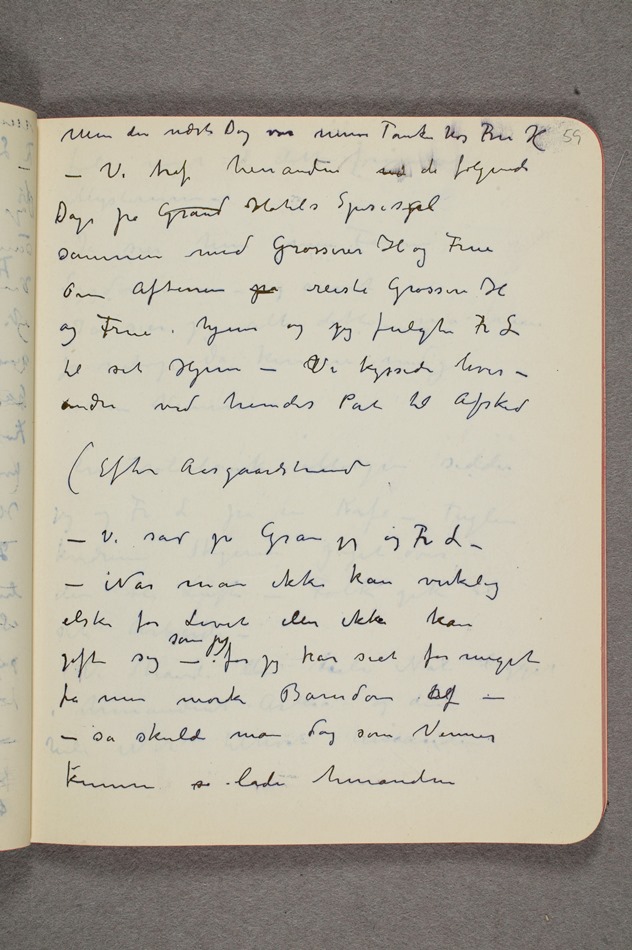 Men den næste Dag var minne Tanker hos Fru K 59
– Vi traf hinanden de følgende
Dage på Grand Hotels Spisesal
sammen med Grosserer H og Frue
Om Aftenen reiste Grosserer H
og Frue hjem og jeg fulgte Fr L
til sit Hjem – Vi kyssede hver-
andre ved hendes Port til Afsked
(Efter Aasgaardstrand
– Vi sad på Gran jeg og Fr L –
– Når man ikke kan virkelig
elske for Livet eller ikke kan
som jeg
gifte sig – for jeg har seet for meget
fra min mørke Barndom af –
– så skulde man dog som Venner
kunne lade hinanden